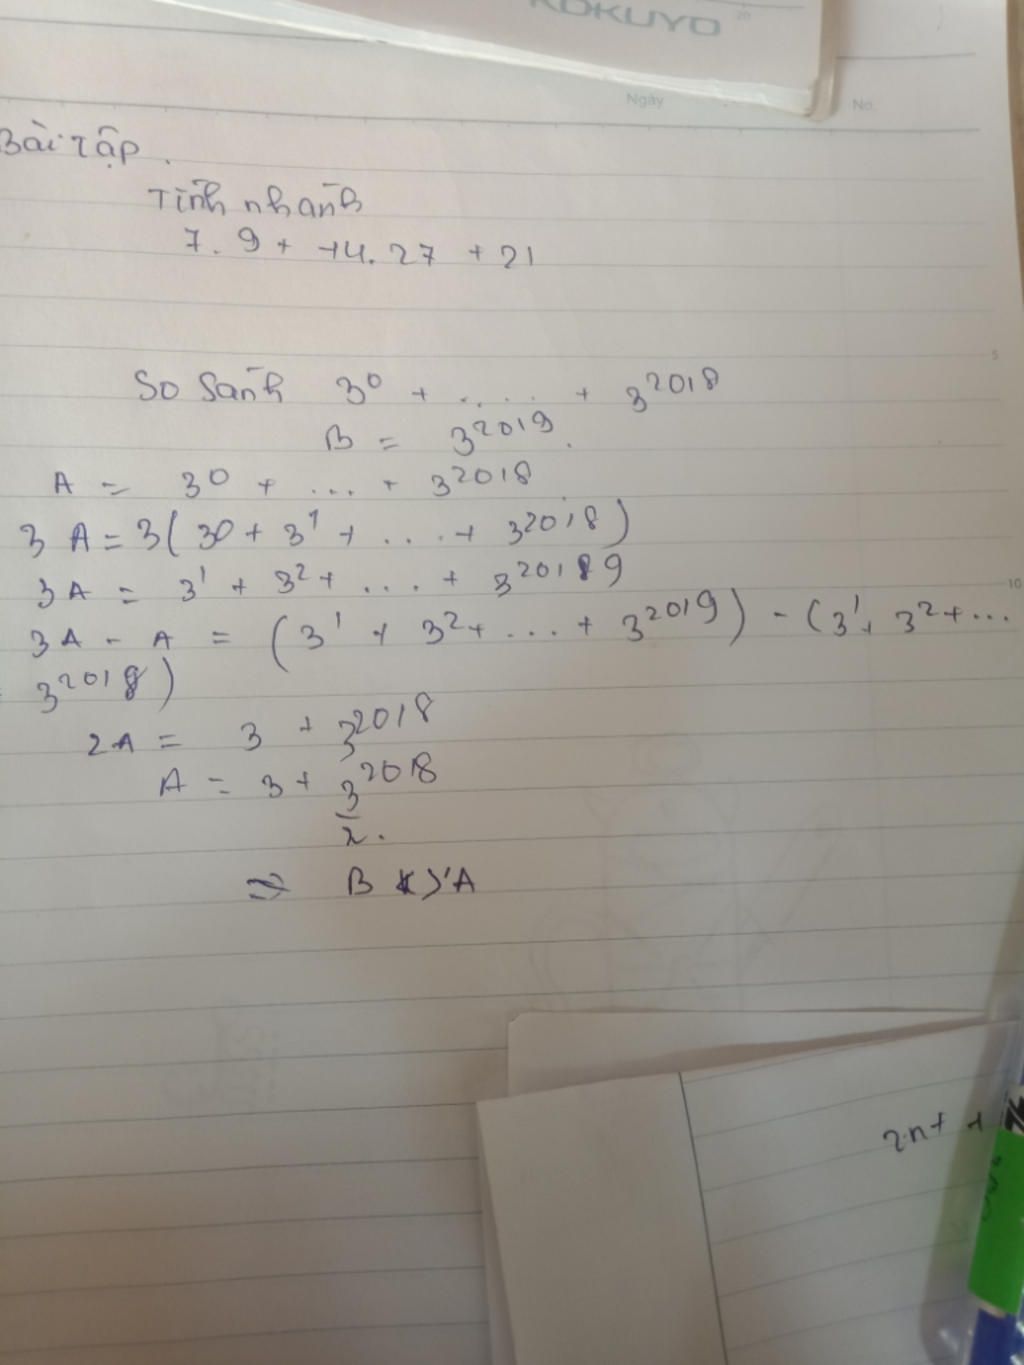 KOKUYO
20
Ngày No.
Bài tập.
Tính nhanh
7.9 + 14.27 + 21
So sánh 3^0 + ..... + 3^2018
5
B = 3^2019.
A = 3^0 + ... + 3^2018
3A = 3(3^0 + 3^1 + .... + 3^2018)
3A = 3^1 + 3^2 + .... + 3^2019
10
3A - A = (3^1 + 3^2 + ... + 3^2019) - (3^1 + 3^2 + ...
3^2018)
2A = 3 + 3^2018
A = 3 + 3^2018
2.
⇒ B > A
2n +